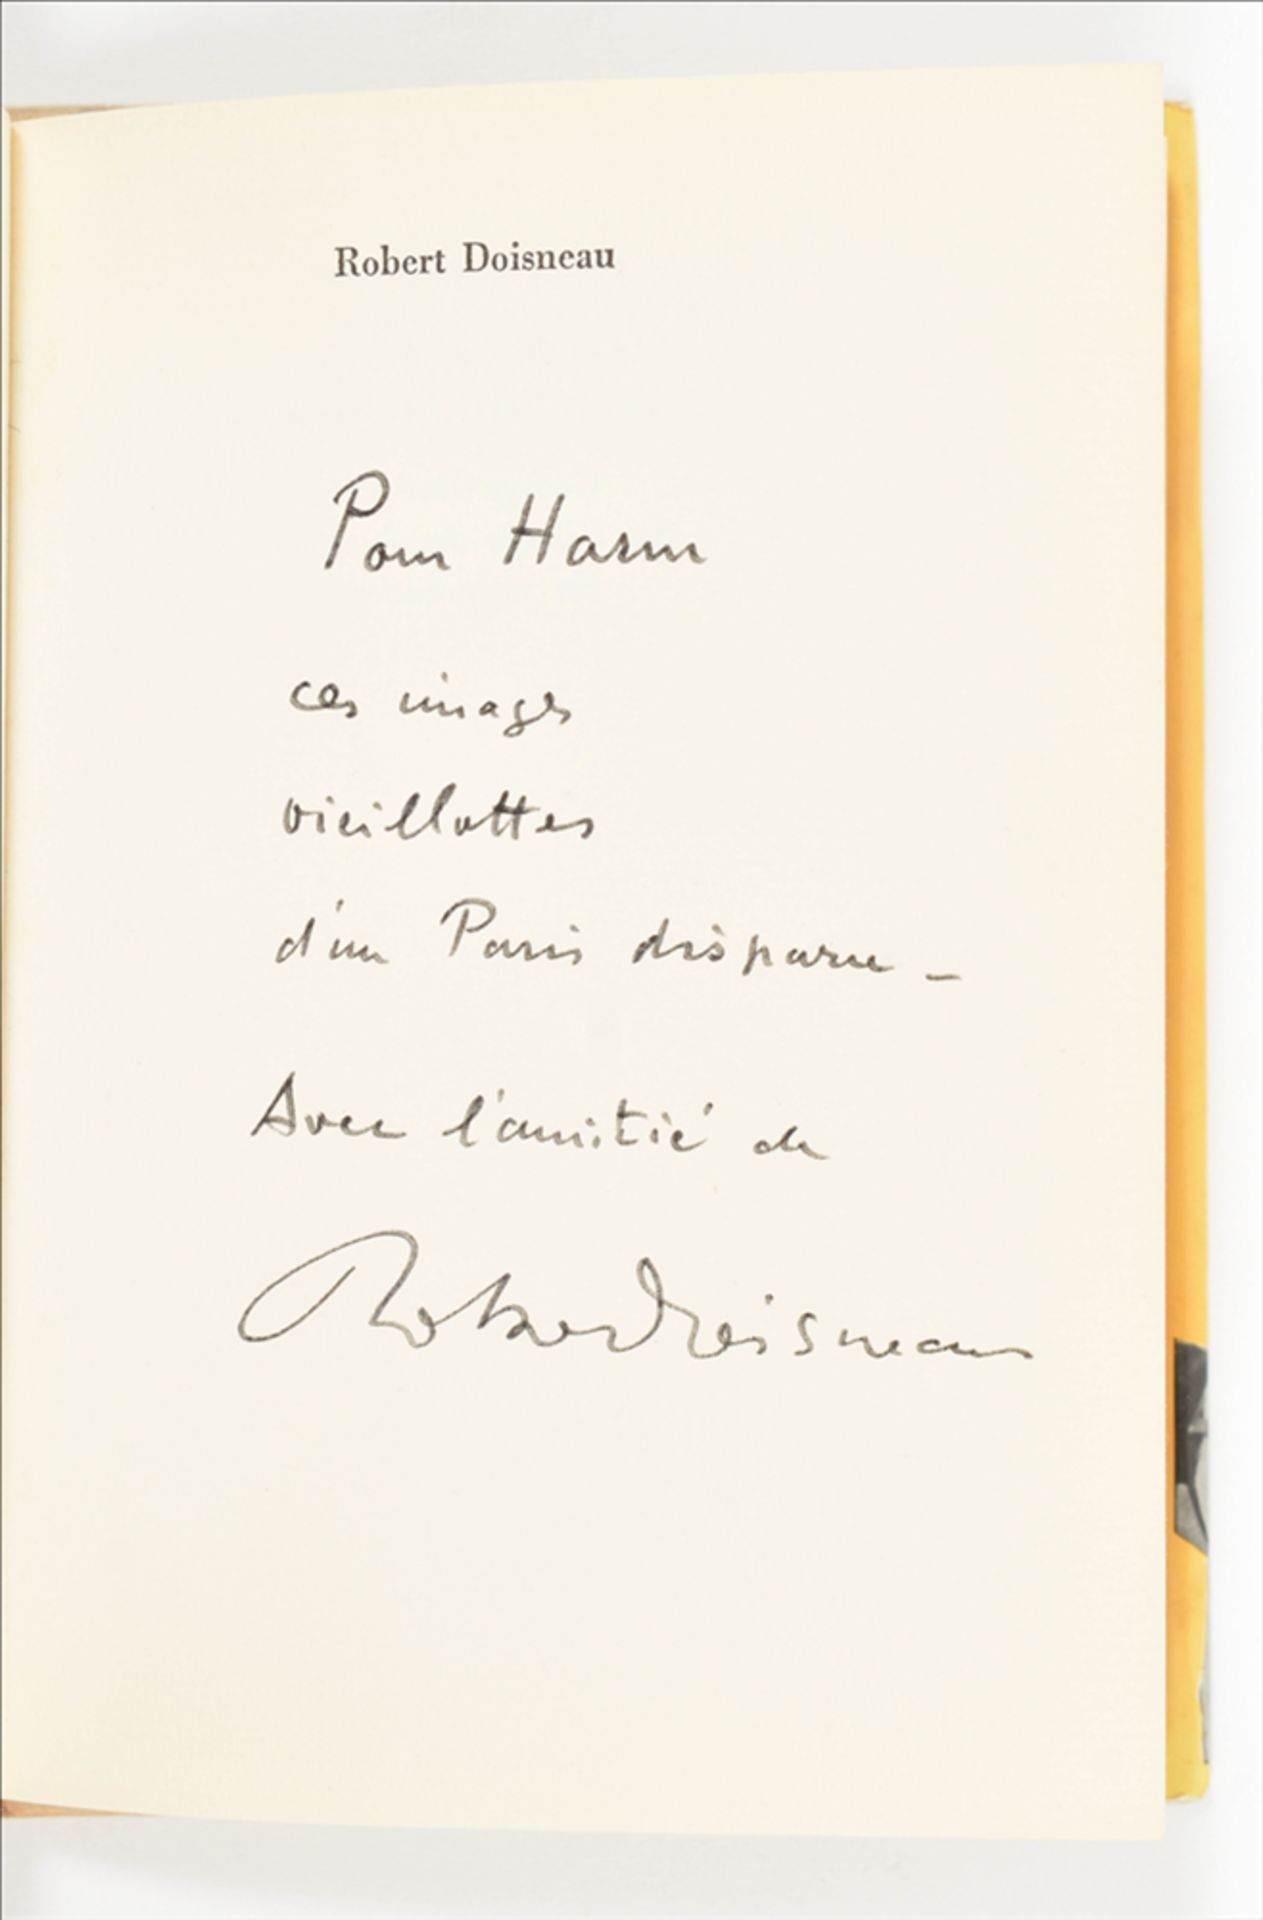 Robert Doisneau
Pour Harm
ces images
vieillottes
d'un Paris disparu -
Avec l'amitié de
Robert Doisneau